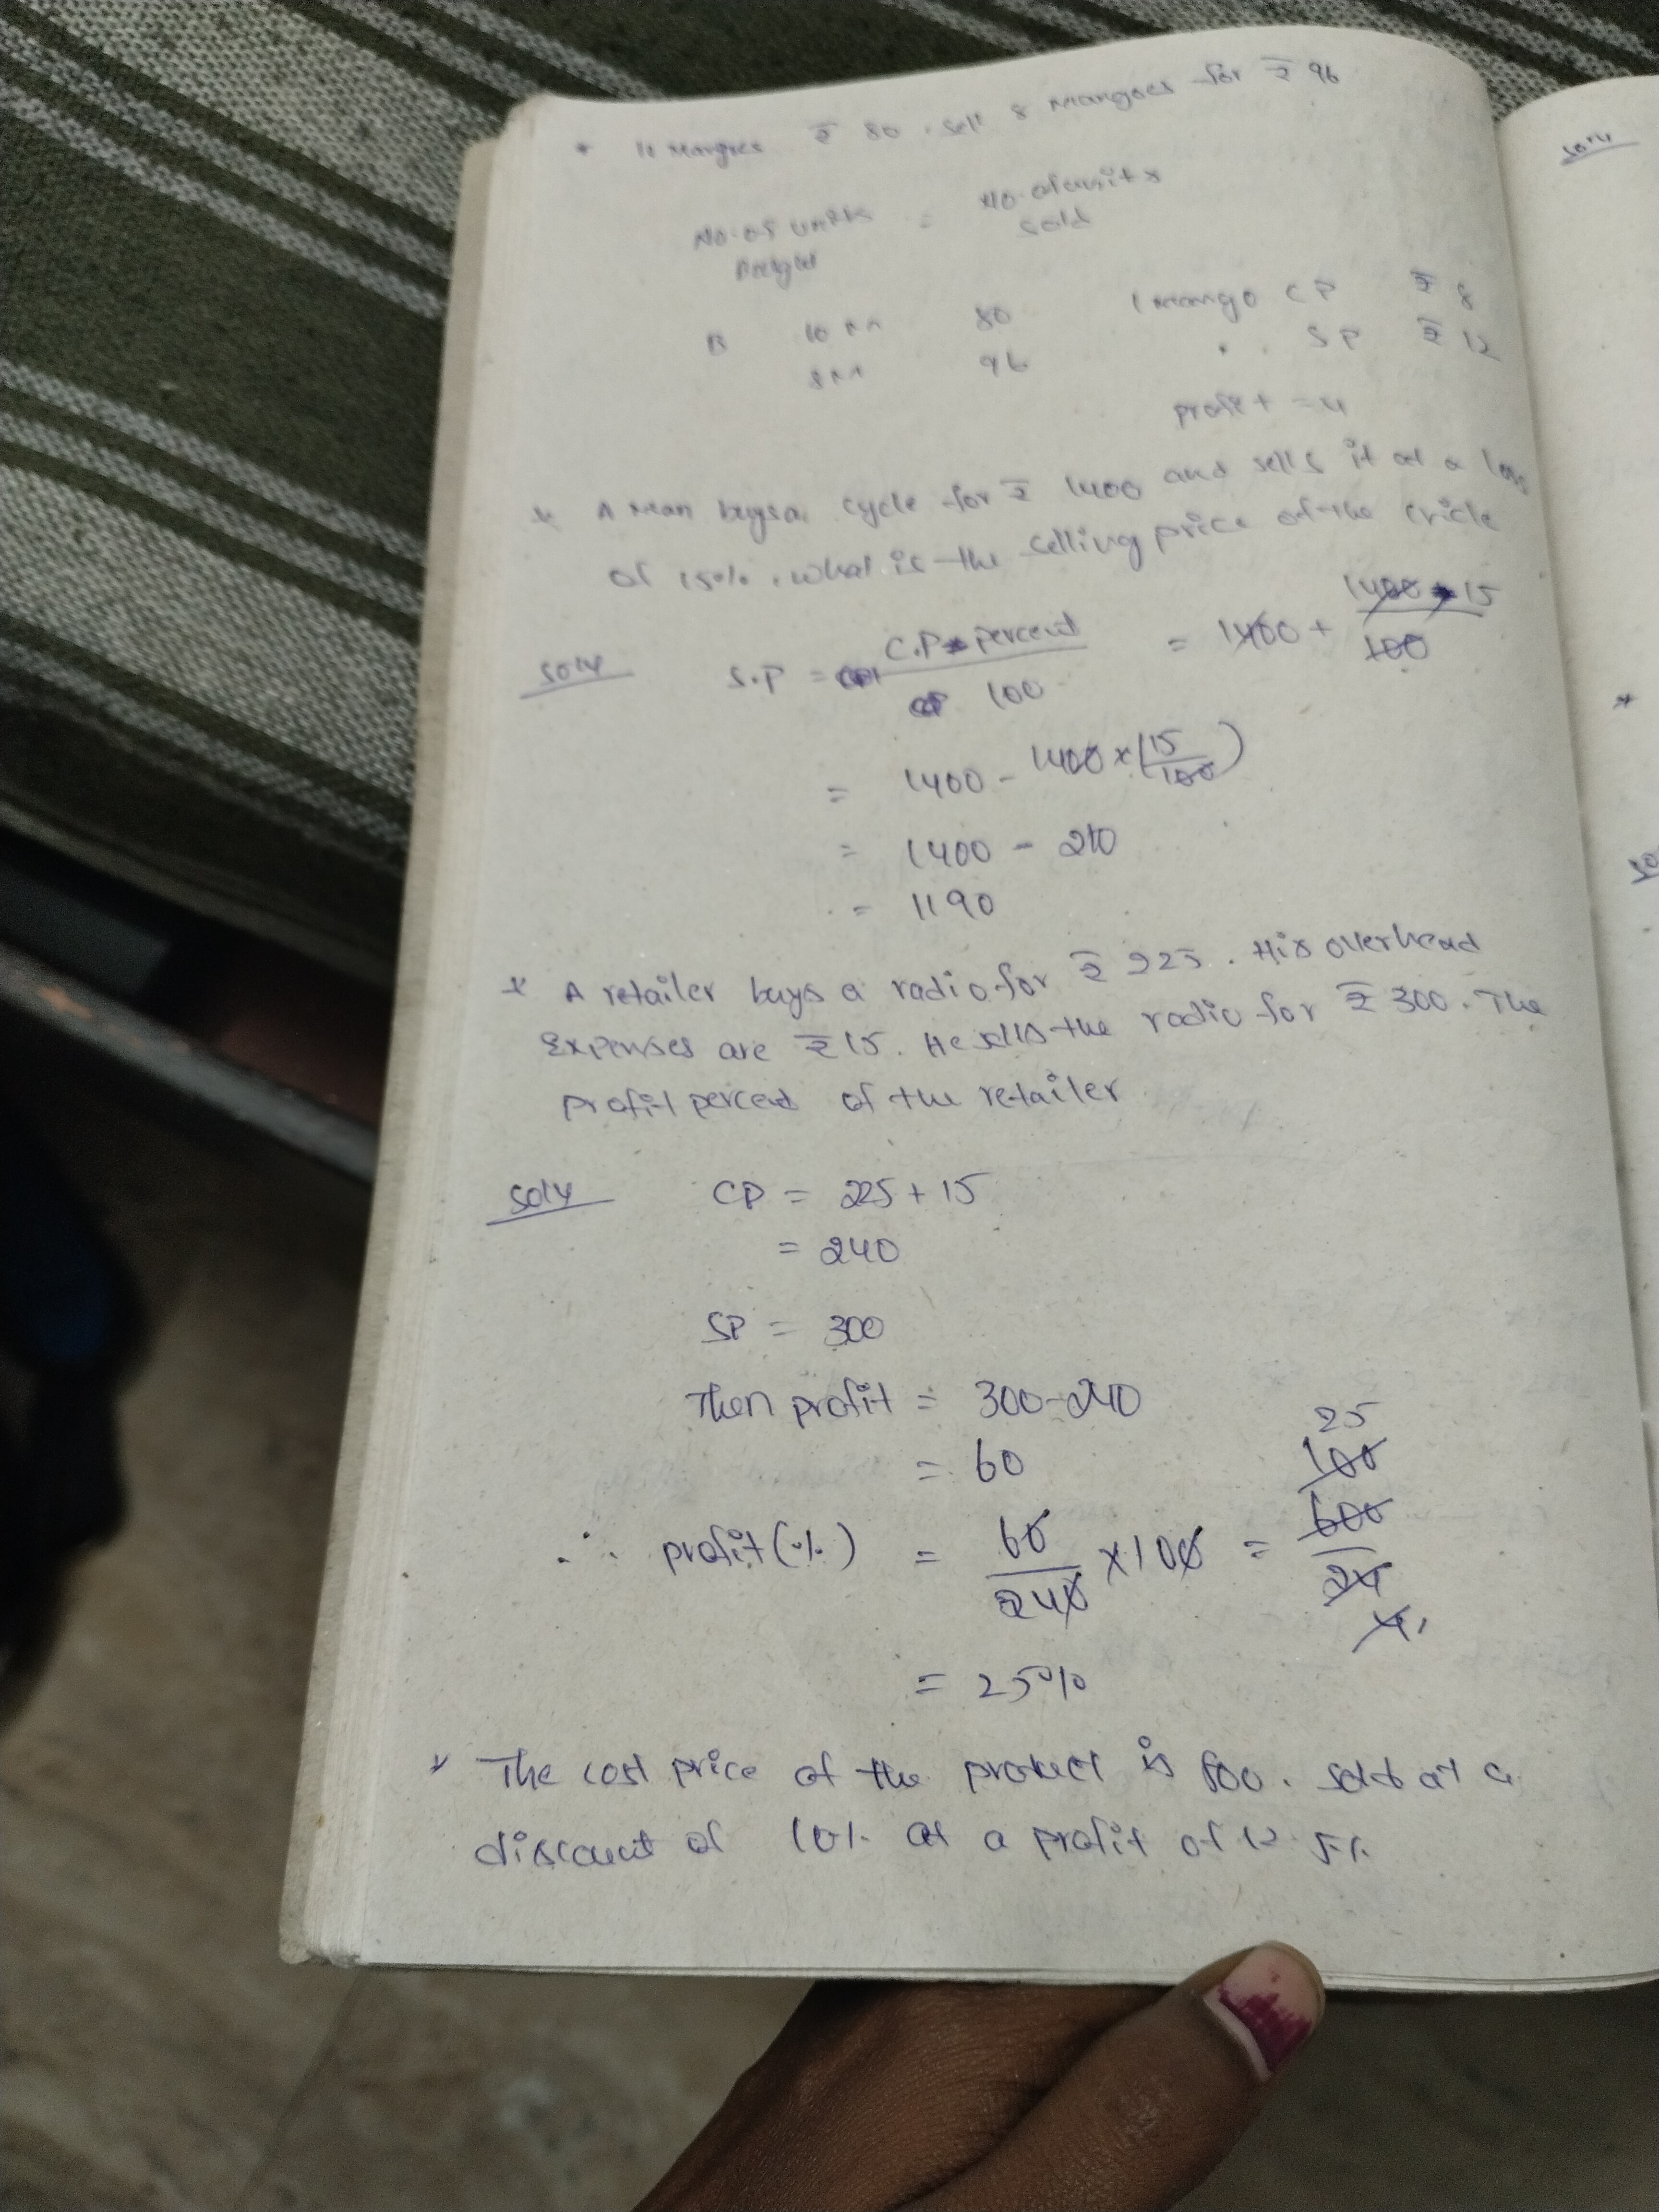 * 10 Mangoes ₹ 80 . Sell 8 Mangoes for ₹ 96
No. of units = No. of units
sold
B 10 M 80 1 Mango CP ₹ 8
8 M 96 " SP ₹ 12
profit = 4
* A Man buys a cycle for ₹ 1400 and sells it at a loss
of 15%. what is the selling price of the cricle
Soly S.P = C.P * percent / 100 = 1400 + 1400 * 15 / 100
= 1400 - 1400 x (15/100)
= 1400 - 210
= 1190
* A retailer buys a radio for ₹ 225. His overhead
Expenses are ₹ 15. He sells the radio for ₹ 300. The
profit percent of the retailer
Soly CP = 225 + 15
= 240
SP = 300
Then profit = 300-240
= 60
∴ profit (%) = 60/240 x 100 = 600/24
100
25
4
= 25%
* The cost price of the product is 800. sold at a
discount of 10% at a profit of 12.5%
Soly
*